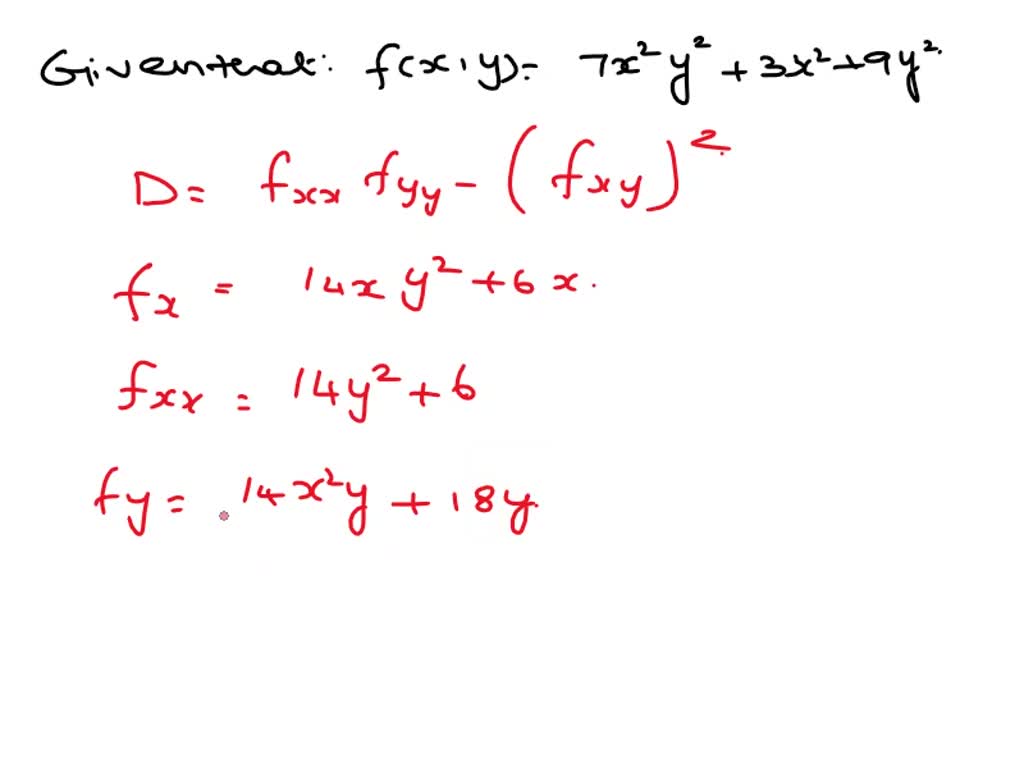 Given that: f(x,y)= 7x²y²+3x²+9y².
D= fxx fyy-(fxy)².
fx = 14xy²+6x.
fxx = 14y²+6
fy= 14x²y+18y.